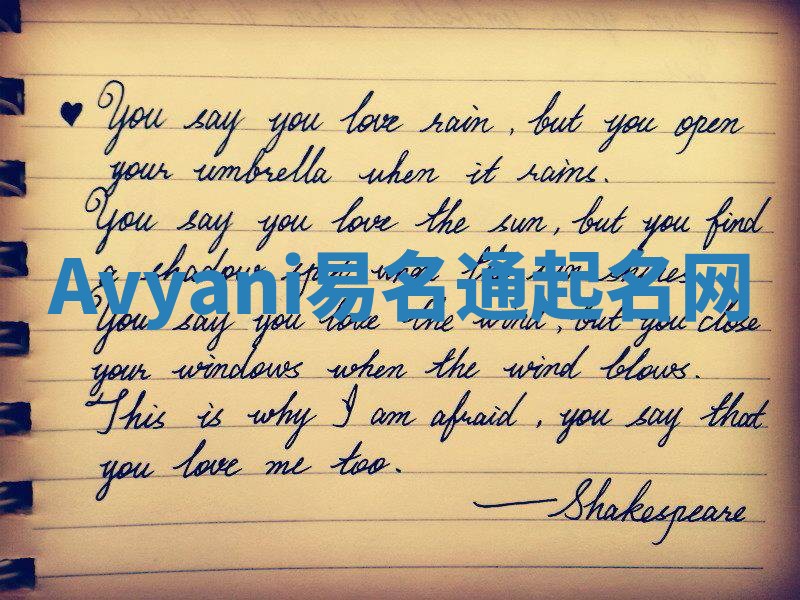 ♥ You say you love rain, but you open
your umbrella when it rains.
You say you love the sun, but you find
a shadow spot when the sun shines.
Avyani易名通起名网
You say you love the wind, but you close
your windows when the wind blows.
This is why I am afraid, you say that
you love me too.
— Shakespeare